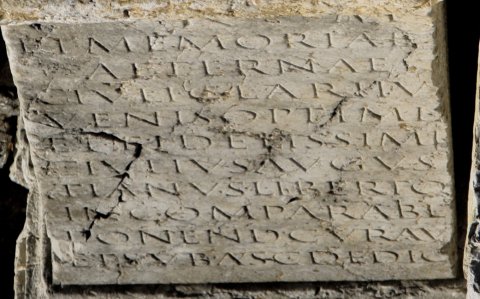 ET MEMORIAE
AETERNAE
C IVLI CLARI IV
VENIS OPTIMI
ET FIDELISSIMI
TI IVLIVS AVGVS
TIANVS LIBERTO
INCOMPARABL
PONEND CVRAV
ET SVB ASC DEDIC